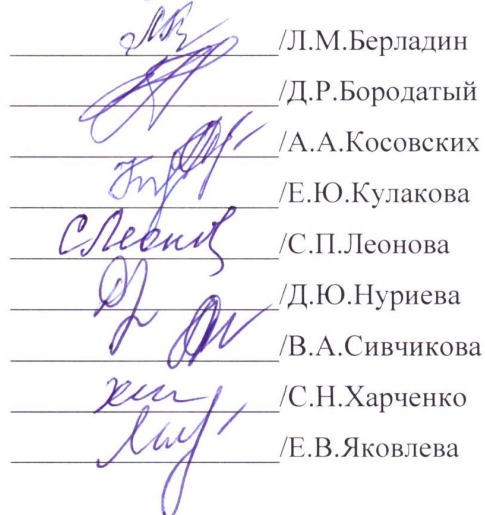 /Л.М.Бердадин
/Д.Р.Бородатый
/А.А.Косовских
/Е.Ю.Кулакова
СЛеонов /С.П.Леонова
/Д.Ю.Нуриева
/В.А.Сивчикова
/С.Н.Харченко
/Е.В.Яковлева